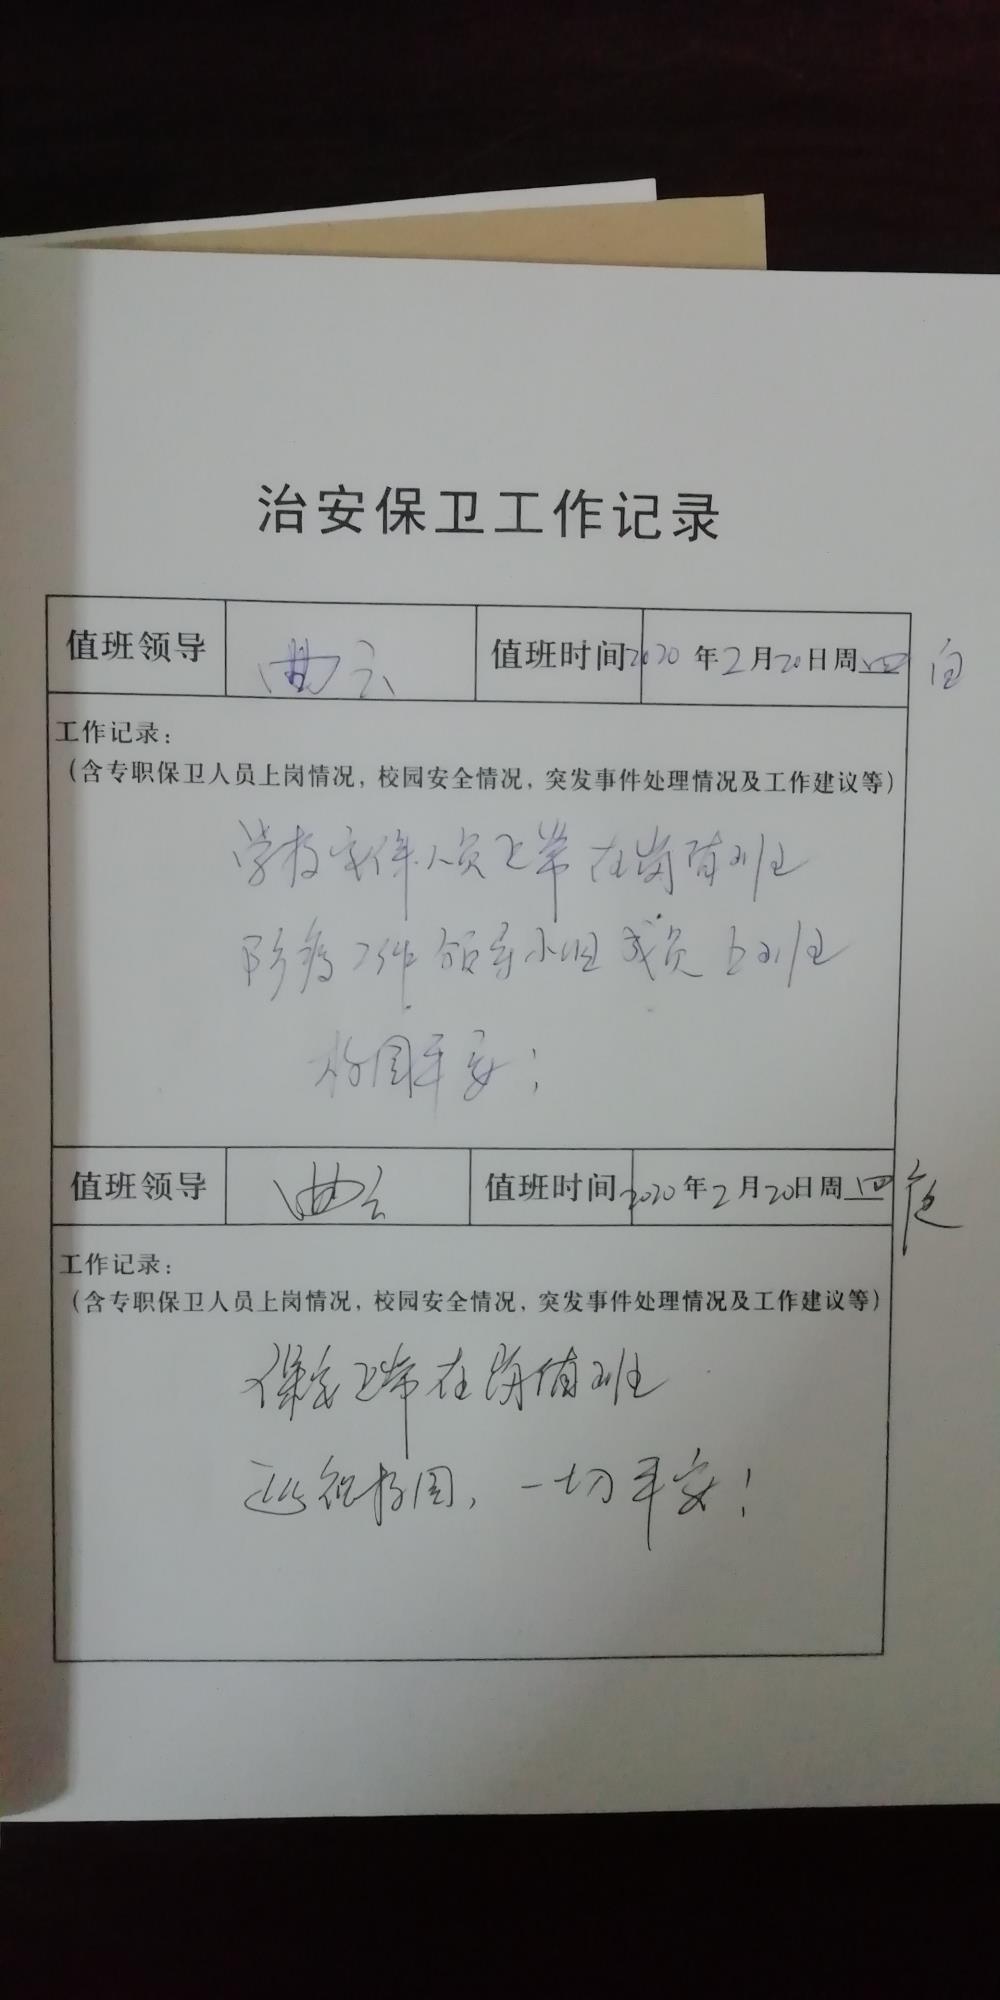 治安保卫工作记录
值班领导 曲云 值班时间 2020年2月20日周四 白
工作记录：
（含专职保卫人员上岗情况，校园安全情况，突发事件处理情况及工作建议等）
学校安保人员正常在岗值班
防疫工作领导小组成员 班
校园平安；
值班领导 曲云 值班时间 2020年2月20日周四 夜
工作记录：
（含专职保卫人员上岗情况，校园安全情况，突发事件处理情况及工作建议等）
保安正常在岗值班
巡视校园，一切平安！